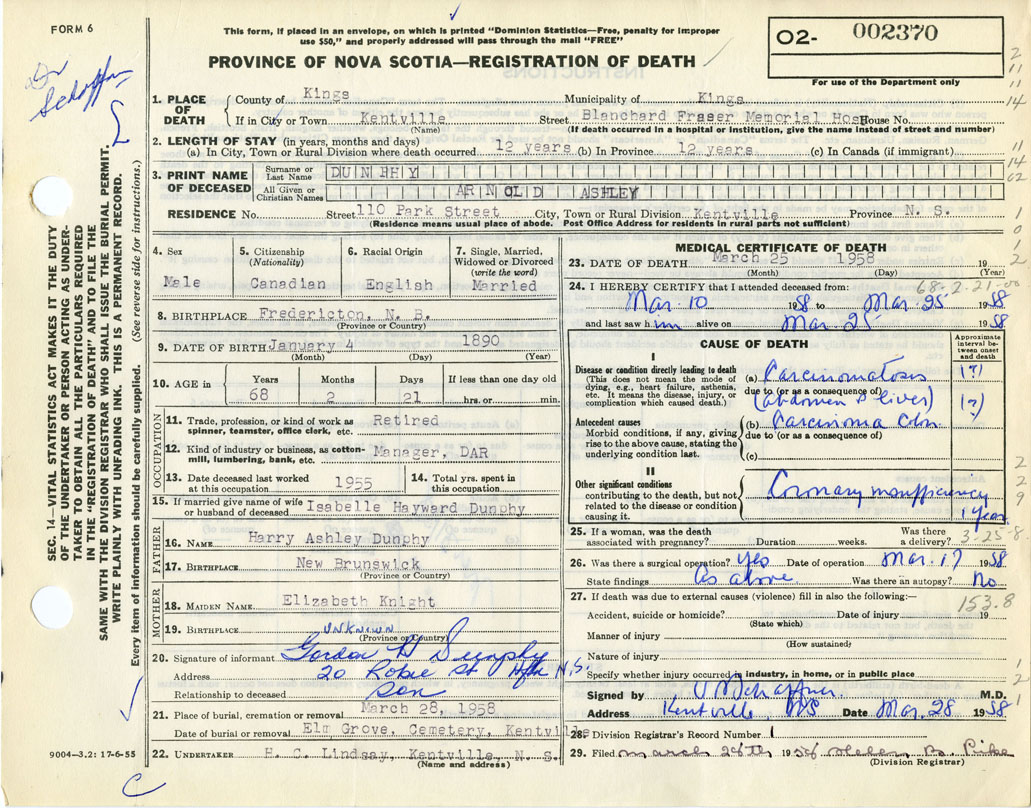 FORM 6
This form, if placed in an envelope, on which is printed "Dominion Statistics—Free, penalty for improper
use $50," and properly addressed will pass through the mail "FREE"
PROVINCE OF NOVA SCOTIA—REGISTRATION OF DEATH
O2- 002370
For use of the Department only
Dr
SEC. 14—VITAL STATISTICS ACT MAKES IT THE DUTY
OF THE UNDERTAKER OR PERSON ACTING AS UNDER-
TAKER TO OBTAIN ALL THE PARTICULARS REQUIRED
IN THE "REGISTRATION OF DEATH" AND TO FILE THE
SAME WITH THE DIVISION REGISTRAR WHO SHALL ISSUE THE BURIAL PERMIT.
WRITE PLAINLY WITH UNFADING INK. THIS IS A PERMANENT RECORD.
Every item of information should be carefully supplied. (See reverse side for instructions.)
1. PLACE OF DEATH
County of Kings Municipality of Kings
If in City or Town Kentville Street Blanchard Fraser Memorial Hosp House No.
(Name) (If death occurred in a hospital or institution, give the name instead of street and number)
2. LENGTH OF STAY (in years, months and days)
(a) In City, Town or Rural Division where death occurred 12 years (b) In Province 12 years (c) In Canada (if immigrant)
3. PRINT NAME OF DECEASED
Surname or Last Name DUNPHY
All Given or Christian Names ARNOLD ASHLEY
RESIDENCE No. Street 110 Park Street City, Town or Rural Division Kentville Province N. S.
(Residence means usual place of abode. Post Office Address for residents in rural parts not sufficient)
4. Sex
Male
5. Citizenship (Nationality)
Canadian
6. Racial Origin
English
7. Single, Married, Widowed or Divorced (write the word)
Married
8. BIRTHPLACE Fredericton, N. B.
(Province or Country)
9. DATE OF BIRTH January 4 1890
(Month) (Day) (Year)
10. AGE in Years Months Days If less than one day old
68 2 21 hrs. or min.
OCCUPATION
11. Trade, profession, or kind of work as spinner, teamster, office clerk, etc. Retired
12. Kind of industry or business, as cotton-mill, lumbering, bank, etc. Manager, DAR
13. Date deceased last worked at this occupation 1955
14. Total yrs. spent in this occupation
15. If married give name of wife or husband of deceased Isabelle Hayward Dunphy
FATHER
16. NAME Harry Ashley Dunphy
17. BIRTHPLACE New Brunswick
(Province or Country)
MOTHER
18. MAIDEN NAME Elizabeth Knight
19. BIRTHPLACE UNKNOWN
(Province or Country)
20. Signature of informant Gordon H Dunphy
Address 20 Robie St Hfx N.S.
Relationship to deceased Son
21. Place of burial, cremation or removal March 28, 1958
Date of burial or removal Elm Grove, Cemetery, Kentville
22. UNDERTAKER H. C. Lindsay, Kentville, N. S.
(Name and address)
9004—3.2: 17-6-55
C
MEDICAL CERTIFICATE OF DEATH
23. DATE OF DEATH March 25 1958 19
(Month) (Day) (Year)
24. I HEREBY CERTIFY that I attended deceased from: 68-2-21-00
Mar. 10 1958 to Mar 25 1958
and last saw him alive on Mar 25 1958
CAUSE OF DEATH
Approximate interval between onset and death
I
Disease or condition directly leading to death
(This does not mean the mode of dying, e.g., heart failure, asthenia, etc. It means the disease, injury, or complication which caused death.)
(a) Carcinomatosis (?)
due to (or as a consequence of)
(abdomen & liver) (?)
Antecedent causes
Morbid conditions, if any, giving rise to the above cause, stating the underlying condition last.
(b) Carcinoma Colon
due to (or as a consequence of)
(c)
II
Other significant conditions
contributing to the death, but not related to the disease or condition causing it.
Coronary insufficiency
1 year
25. If a woman, was the death associated with pregnancy? Duration weeks. Was there a delivery?
3-25-8
26. Was there a surgical operation? Yes Date of operation Mar. 17 1958
State findings As above Was there an autopsy? No
27. If death was due to external causes (violence) fill in also the following:—
153.8
Accident, suicide or homicide? Date of injury 19
(State which)
Manner of injury
(How sustained)
Nature of injury
Specify whether injury occurred in industry, in home, or in public place
Signed by V D Schaffner M.D.
Address Kentville, NS Date Mar. 28 1958
28. Division Registrar's Record Number
29. Filed March 29th 1958 Helen B. Pike
(Division Registrar)
2
11
11
14
11
14
02
1
0
1
2
2
2
9
1
2
1